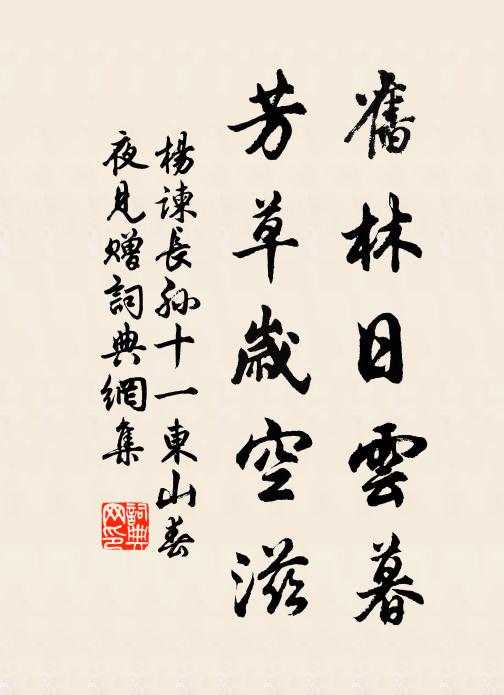 舊林日雲暮
芳草歲空滋
楊諫長孫十一東山春
夜見贈詞典網集
詞典
网印